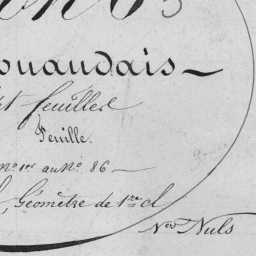 ouaudais
feuilles
Feuille.
N° 1er au N° 86
Géomètre de 1re cl
Nos Nuls